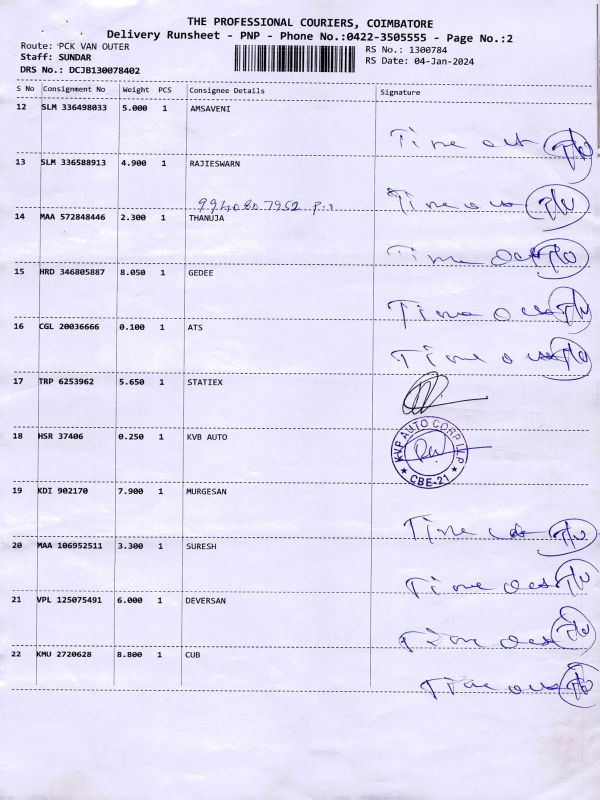 THE PROFESSIONAL COURIERS, COIMBATORE
Delivery Runsheet - PNP - Phone No.:0422-3505555 - Page No.:2
Route: PCK VAN OUTER
RS No.: 1300784
Staff: SUNDAR
RS Date: 04-Jan-2024
DRS No.: DCJB130078402
S No Consignment No Weight PCS Consignee Details Signature
12 SLM 336498033 5.000 1 AMSAVENI
Time out T/o
13 SLM 336588913 4.900 1 RAJIESWARN
9940807952 P.
Time out T/o
14 MAA 572848446 2.300 1 THANUJA
Time out T/o
15 HRD 346805887 8.050 1 GEDEE
Time out T/o
16 CGL 20036666 0.100 1 ATS
Time out T/o
17 TRP 6253962 5.650 1 STATIEX
18 HSR 37406 0.250 1 KVB AUTO
KVP AUTO CORP LLP
★ CBE-21 ★
19 KDI 902170 7.900 1 MURGESAN
Time out T/o
20 MAA 106952511 3.300 1 SURESH
Time out T/o
21 VPL 125075491 6.000 1 DEVERSAN
Time out T/o
22 KMU 2720628 8.800 1 CUB
Time out T/o